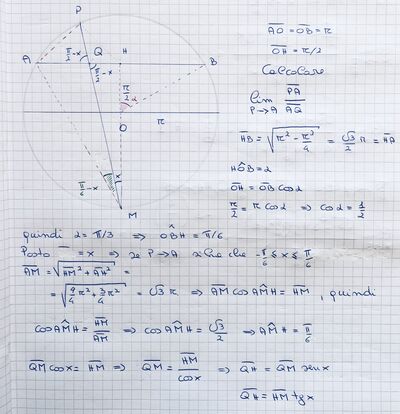 P
A
Q
H
B
π/2 - x
π/2 - x
r/2
α
O
r
π/6 - x
x
M
AO = OB = r
OH = r/2
Calcolare
lim PA/AQ
P→A
HB = √(r² - r²/4) = √3/2 r = HA
HÔB = α
OH = OB cos α
r/2 = r cos α ⇒ cos α = 1/2
quindi α = π/3 ⇒ OB̂H = π/6
Posto = x ⇒ se P→A che -π/6 ≤ x ≤ π/6
AM = √(HM² + AH²) =
= √(9/4 r² + 3/4 r²) = √3 r ⇒ AM cos AM̂H = HM, quindi
cos AM̂H = HM/AM ⇒ cos AM̂H = √3/2 ⇒ AM̂H = π/6
QM cos x = HM ⇒ QM = HM/cos x ⇒ QH = QM sen x
QH = HM tg x